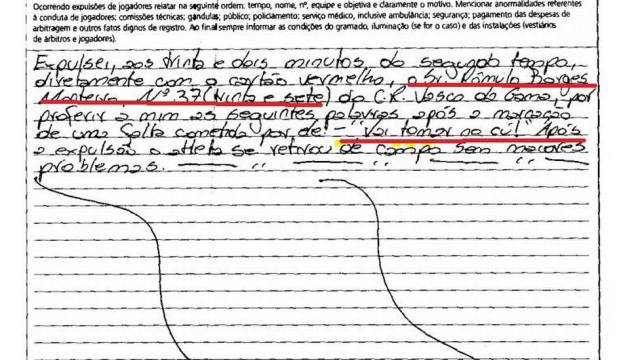 Ocorrendo expulsões de jogadores relatar na seguinte ordem; tempo, nome, nº, equipe e objetiva e claramente o motivo. Mencionar anormalidades referentes
à conduta de jogadores; comissões técnicas; gandulas; público; policiamento; serviço médico, inclusive ambulância; segurança; pagamento das despesas de
arbitragem e outros fatos dignos de registro. Ao final sempre informar as condições do gramado, iluminação (se for o caso) e das instalações (vestiários
de árbitros e jogadores).
Expulsei, aos trinta e dois minutos do segundo tempo,
diretamente com o cartão vermelho, o Sr. Rômulo Borges
Monteiro, Nº 37 (trinta e sete) do C.R. Vasco da Gama, por
proferir a mim as seguintes palavras, após a marcação
de uma falta cometida por ele: - "Vai tomar no cú!" Após
a expulsão o atleta se retirou de campo sem maiores
problemas.